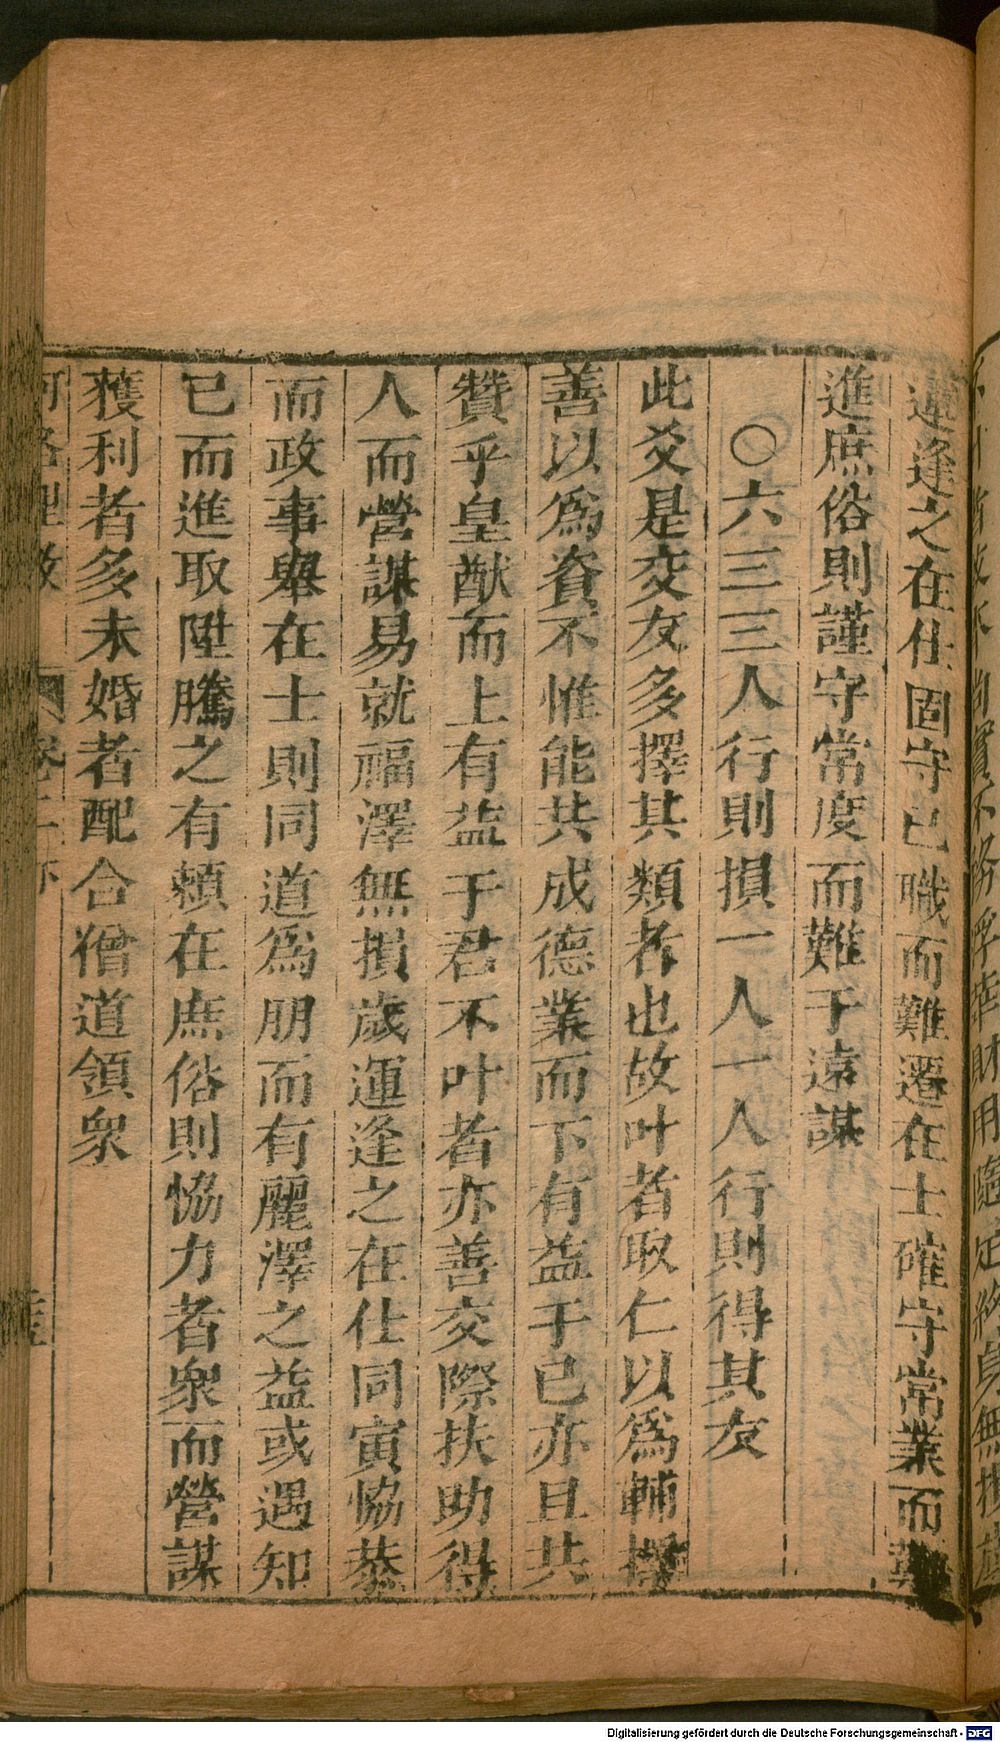 逢之在仕固守已職而難遷在士確守常業而
進庶俗則謹守常度而難于遠謀
○六三三人行則損一人一人行則得其友
此爻是交友多擇其類者也故叶者取仁以爲輔擇
善以爲資不惟能共成德業而下有益于已亦且共
贊乎皇猷而上有益于君不叶者亦善交際扶助得
人而營謀易就福澤無損歲運逢之在仕同寅恊恭
而政事舉在士則同道爲朋而有麗澤之益或遇知
已而進取陞騰之有賴在庶俗則恊力者衆而營謀
獲利者多未婚者配合僧道領衆
河洛理數
Digitalisierung gefördert durch die Deutsche Forschungsgemeinschaft - DFG